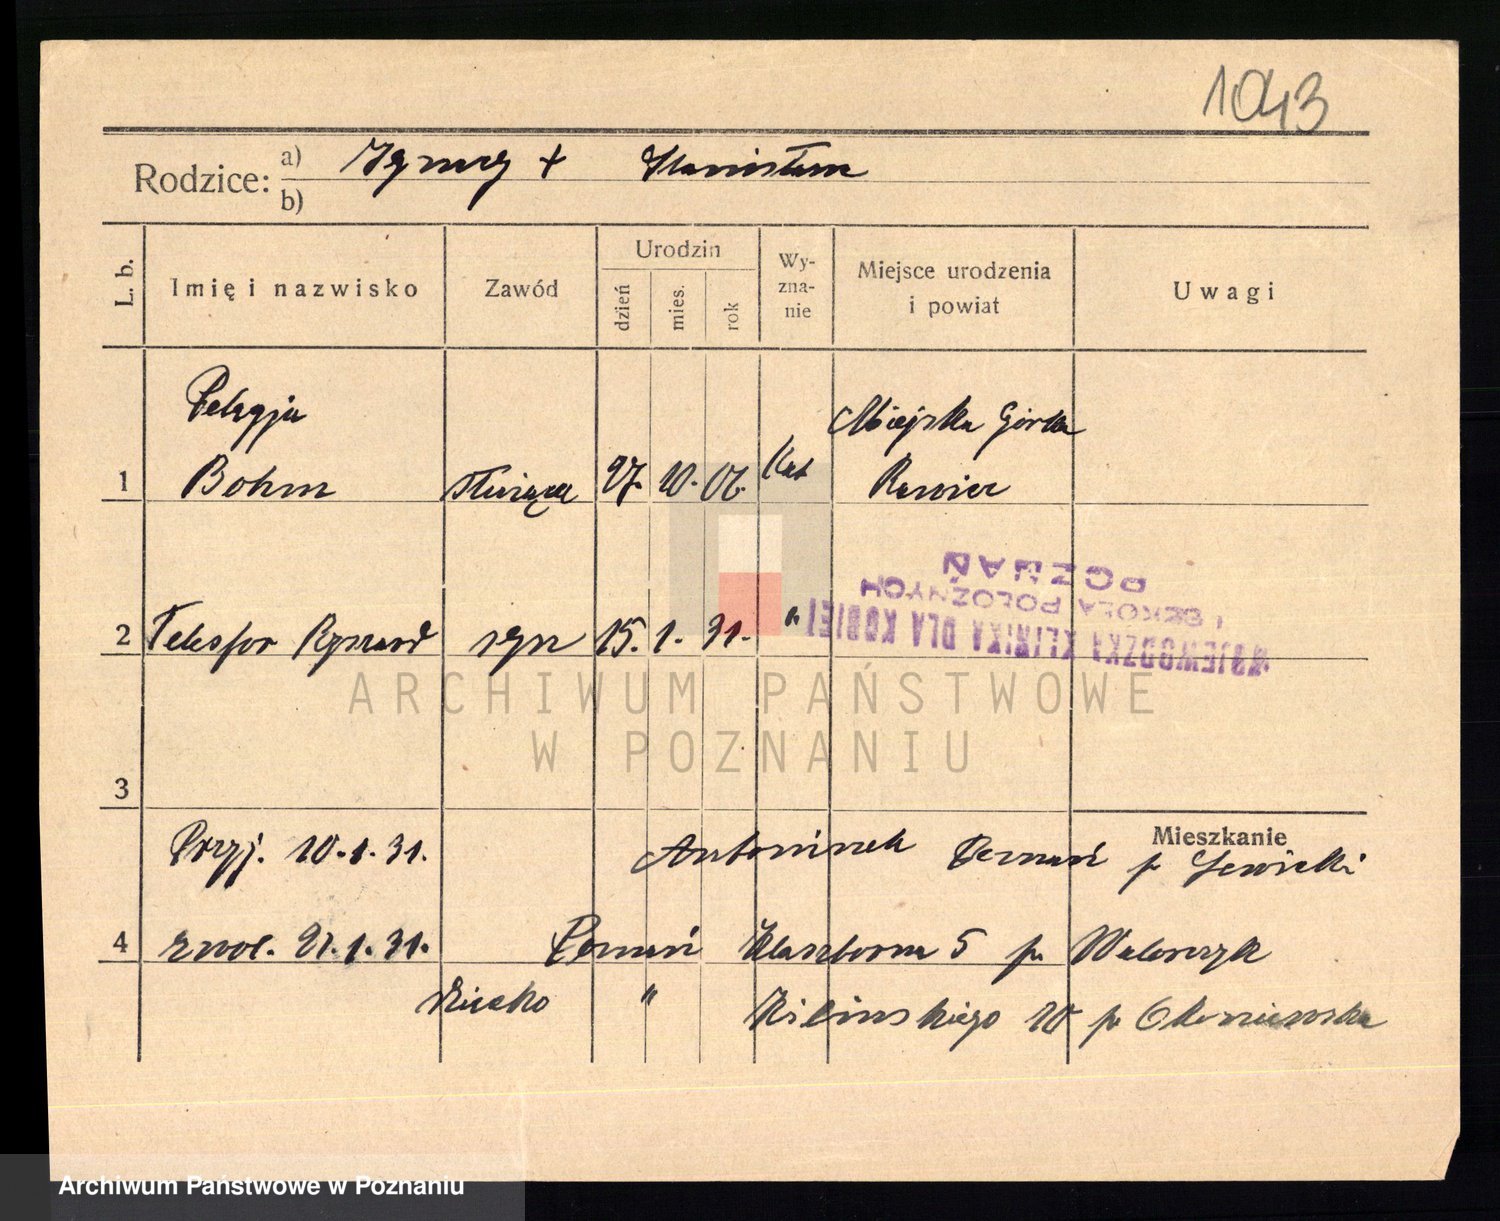 1043
Rodzice: a) Ignacy + Stanisława
b)
L. b. Imię i nazwisko Zawód Urodzin dzień mies. rok Wy-zna-nie Miejsce urodzenia i powiat Uwagi
Pelagja Miejska Górka
1 Bohm służąca 27. 10. 06. Kat Rawicz
POZNAŃ
I SZKOŁA POŁOŻNYCH
WOJEWÓDZKA KLINIKA DLA KOBIET
2 Telesfor Ryszard syn 15. 1. 31. "
ARCHIWUM PAŃSTWOWE
W POZNANIU
3
Mieszkanie
Przyj. 10.1.31. Antoninek Poznań p
4 zwol. 21.1.31. Poznań Klasztorna 5 p. Walorczyk
" Kilinskiego 10 p
Archiwum Państwowe w Poznaniu